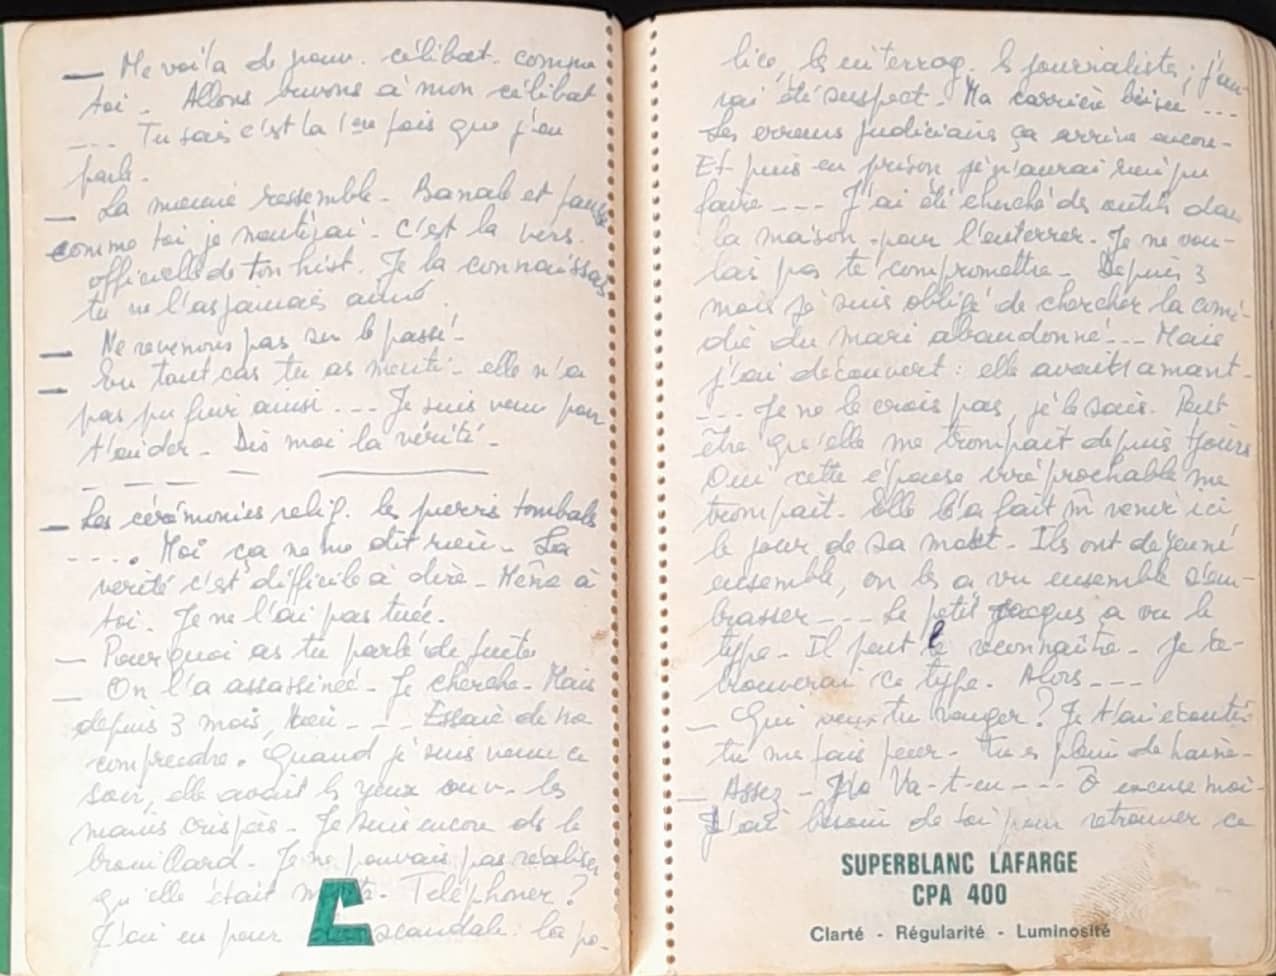 — Me voilà de nouv. célibat. comme
toi. Allons buvons à mon célibat
--- Tu sais c'est la 1ère fois que j'en
parle.
— La mienne ressemble. Banale et fausse
comme toi je
officielle de ton hist. Je la connaissais
tu ne l'as jamais aimé.
— Ne revenons pas sur le passé.
— En tout cas tu as menti. elle n'a
pas pu fuir ainsi... Je suis venu pour
t'aider. Dis moi la vérité.
— Les cérémonies relig. les pierres tombales
.... Moi ça ne me dit rien. La
vérité c'est difficile à dire. Même à
toi. Je ne l'ai pas tuée.
— Pourquoi as tu parlé de fuite
— On l'a assassinée. Je cherche. Mais
depuis 3 mois, rien --- Essaie de me
comprendre. Quand je suis venu ce
soir, elle avait les yeux ouv. les
mains crispées. Je suis encore ds le
brouillard. Je ne pouvais pas réaliser
qu'elle était morte. Téléphoner ?
J'ai eu peur scandale : la po-
lice, les interrog. les journalistes ; j'au-
rai été suspect. Ma carrière brisée ...
Les erreurs judiciaires ça arrive encore.
Et puis en prison je n'aurai rien pu
faire --- J'ai été cherché des outils dans
la maison pour l'enterrer. Je ne vou-
lais pas te compromettre. Depuis 3
mois je suis obligé de la comé-
die du mari abandonné --- Mais
j'ai découvert : elle avait 1 amant.
--- Je ne le crois pas, je le sais. Peut
être qu'elle me trompait depuis tjours
Oui cette épouse irréprochable me
trompait. Elle l'a fait m̂ venir ici
le jour de sa mort. Ils ont dejeuné
ensemble, on les a vu ensemble s'em-
brasser --- Le petit Jacques a vu le
type. Il peut le reconnaître. Je re-
trouverai ce type. Alors ---
— Qui veux tu venger ? Je t'ai écouté
tu me fais peur. Tu es plein de haine.
— Assez - Va-t-en --- Ô excuse moi.
J'ai besoin de toi pour retrouver ce
SUPERBLANC LAFARGE
CPA 400
Clarté - Régularité - Luminosité